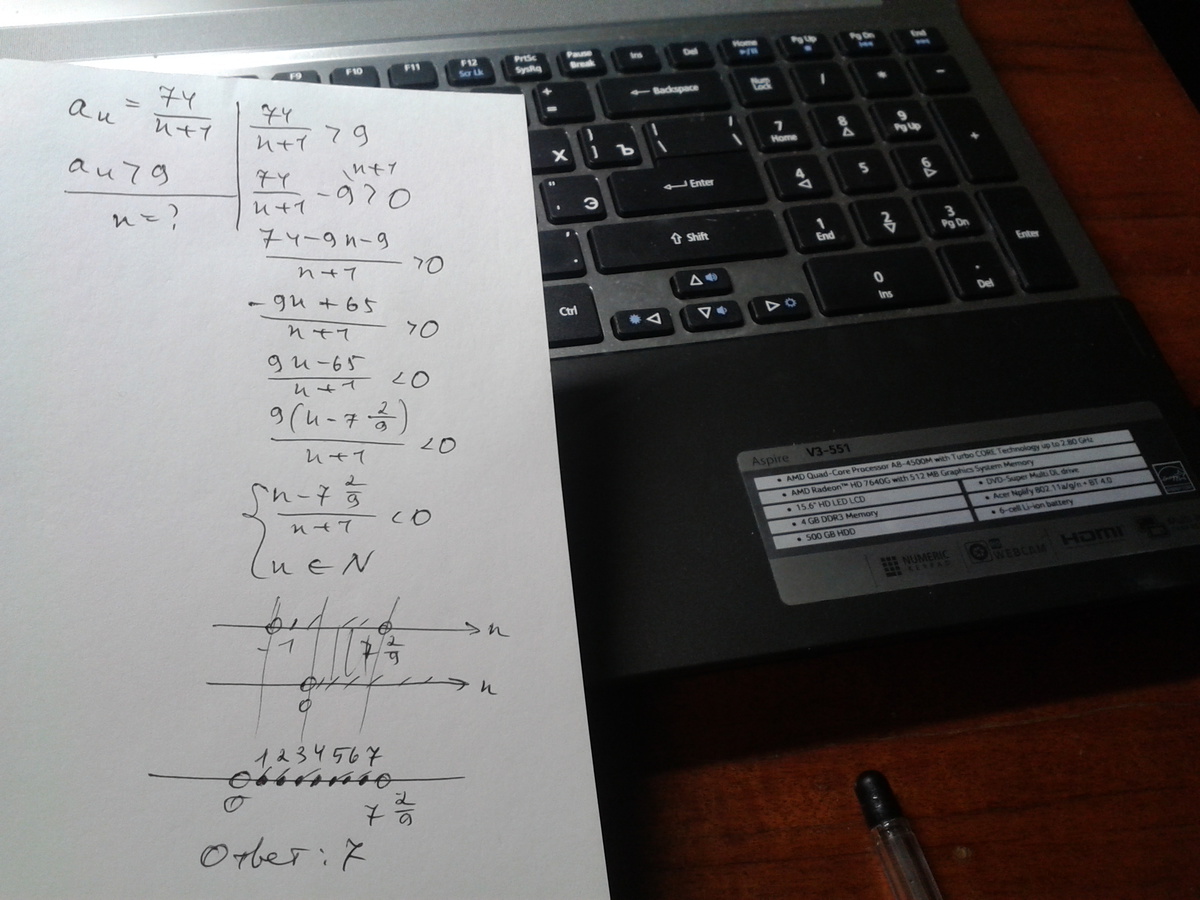 aₙ = 74/(n+1)
aₙ > 9
n = ?
74/(n+1) > 9
74/(n+1) - 9\n+1 > 0
(74-9n-9)/(n+1) > 0
(-9n+65)/(n+1) > 0
(9n-65)/(n+1) < 0
9(n-7 2/9)/(n+1) < 0
{ (n-7 2/9)/(n+1) < 0
n ∈ N
-1 7 2/9 n
0 n
1 2 3 4 5 6 7
0 7 2/9
Ответ: 7
F9 F10 F11 F12 Scr Lk PrtSc SysRq Pause Break Ins Del Home Pg Up Pg Dn End
+ = ← Backspace Num Lock / * -
Х } ] Ъ | \ / \ 7 Home 8 9 Pg Up +
" ' Э ← Enter 4 5 6
⇧ Shift 1 End 2 3 Pg Dn Enter
Ctrl 0 Ins . Del
Aspire V3-551
• AMD Quad-Core Processor A8-4500M with Turbo CORE Technology up to 2.80 GHz
• AMD Radeon™ HD 7640G with 512 MB Graphics System Memory
• 15.6" HD LED LCD
• 4 GB DDR3 Memory
• 500 GB HDD
• DVD-Super Multi DL drive
• Acer Nplify 802.11a/g/n + BT 4.0
• 6-cell Li-ion battery
NUMERIC KEYPAD
HD WEBCAM
HDMI